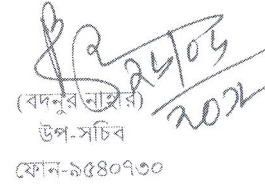 ২৮/০৫
২০১২
(বদনুর নাহার)
উপ-সচিব
ফোন-৯৫৪০৭৩০